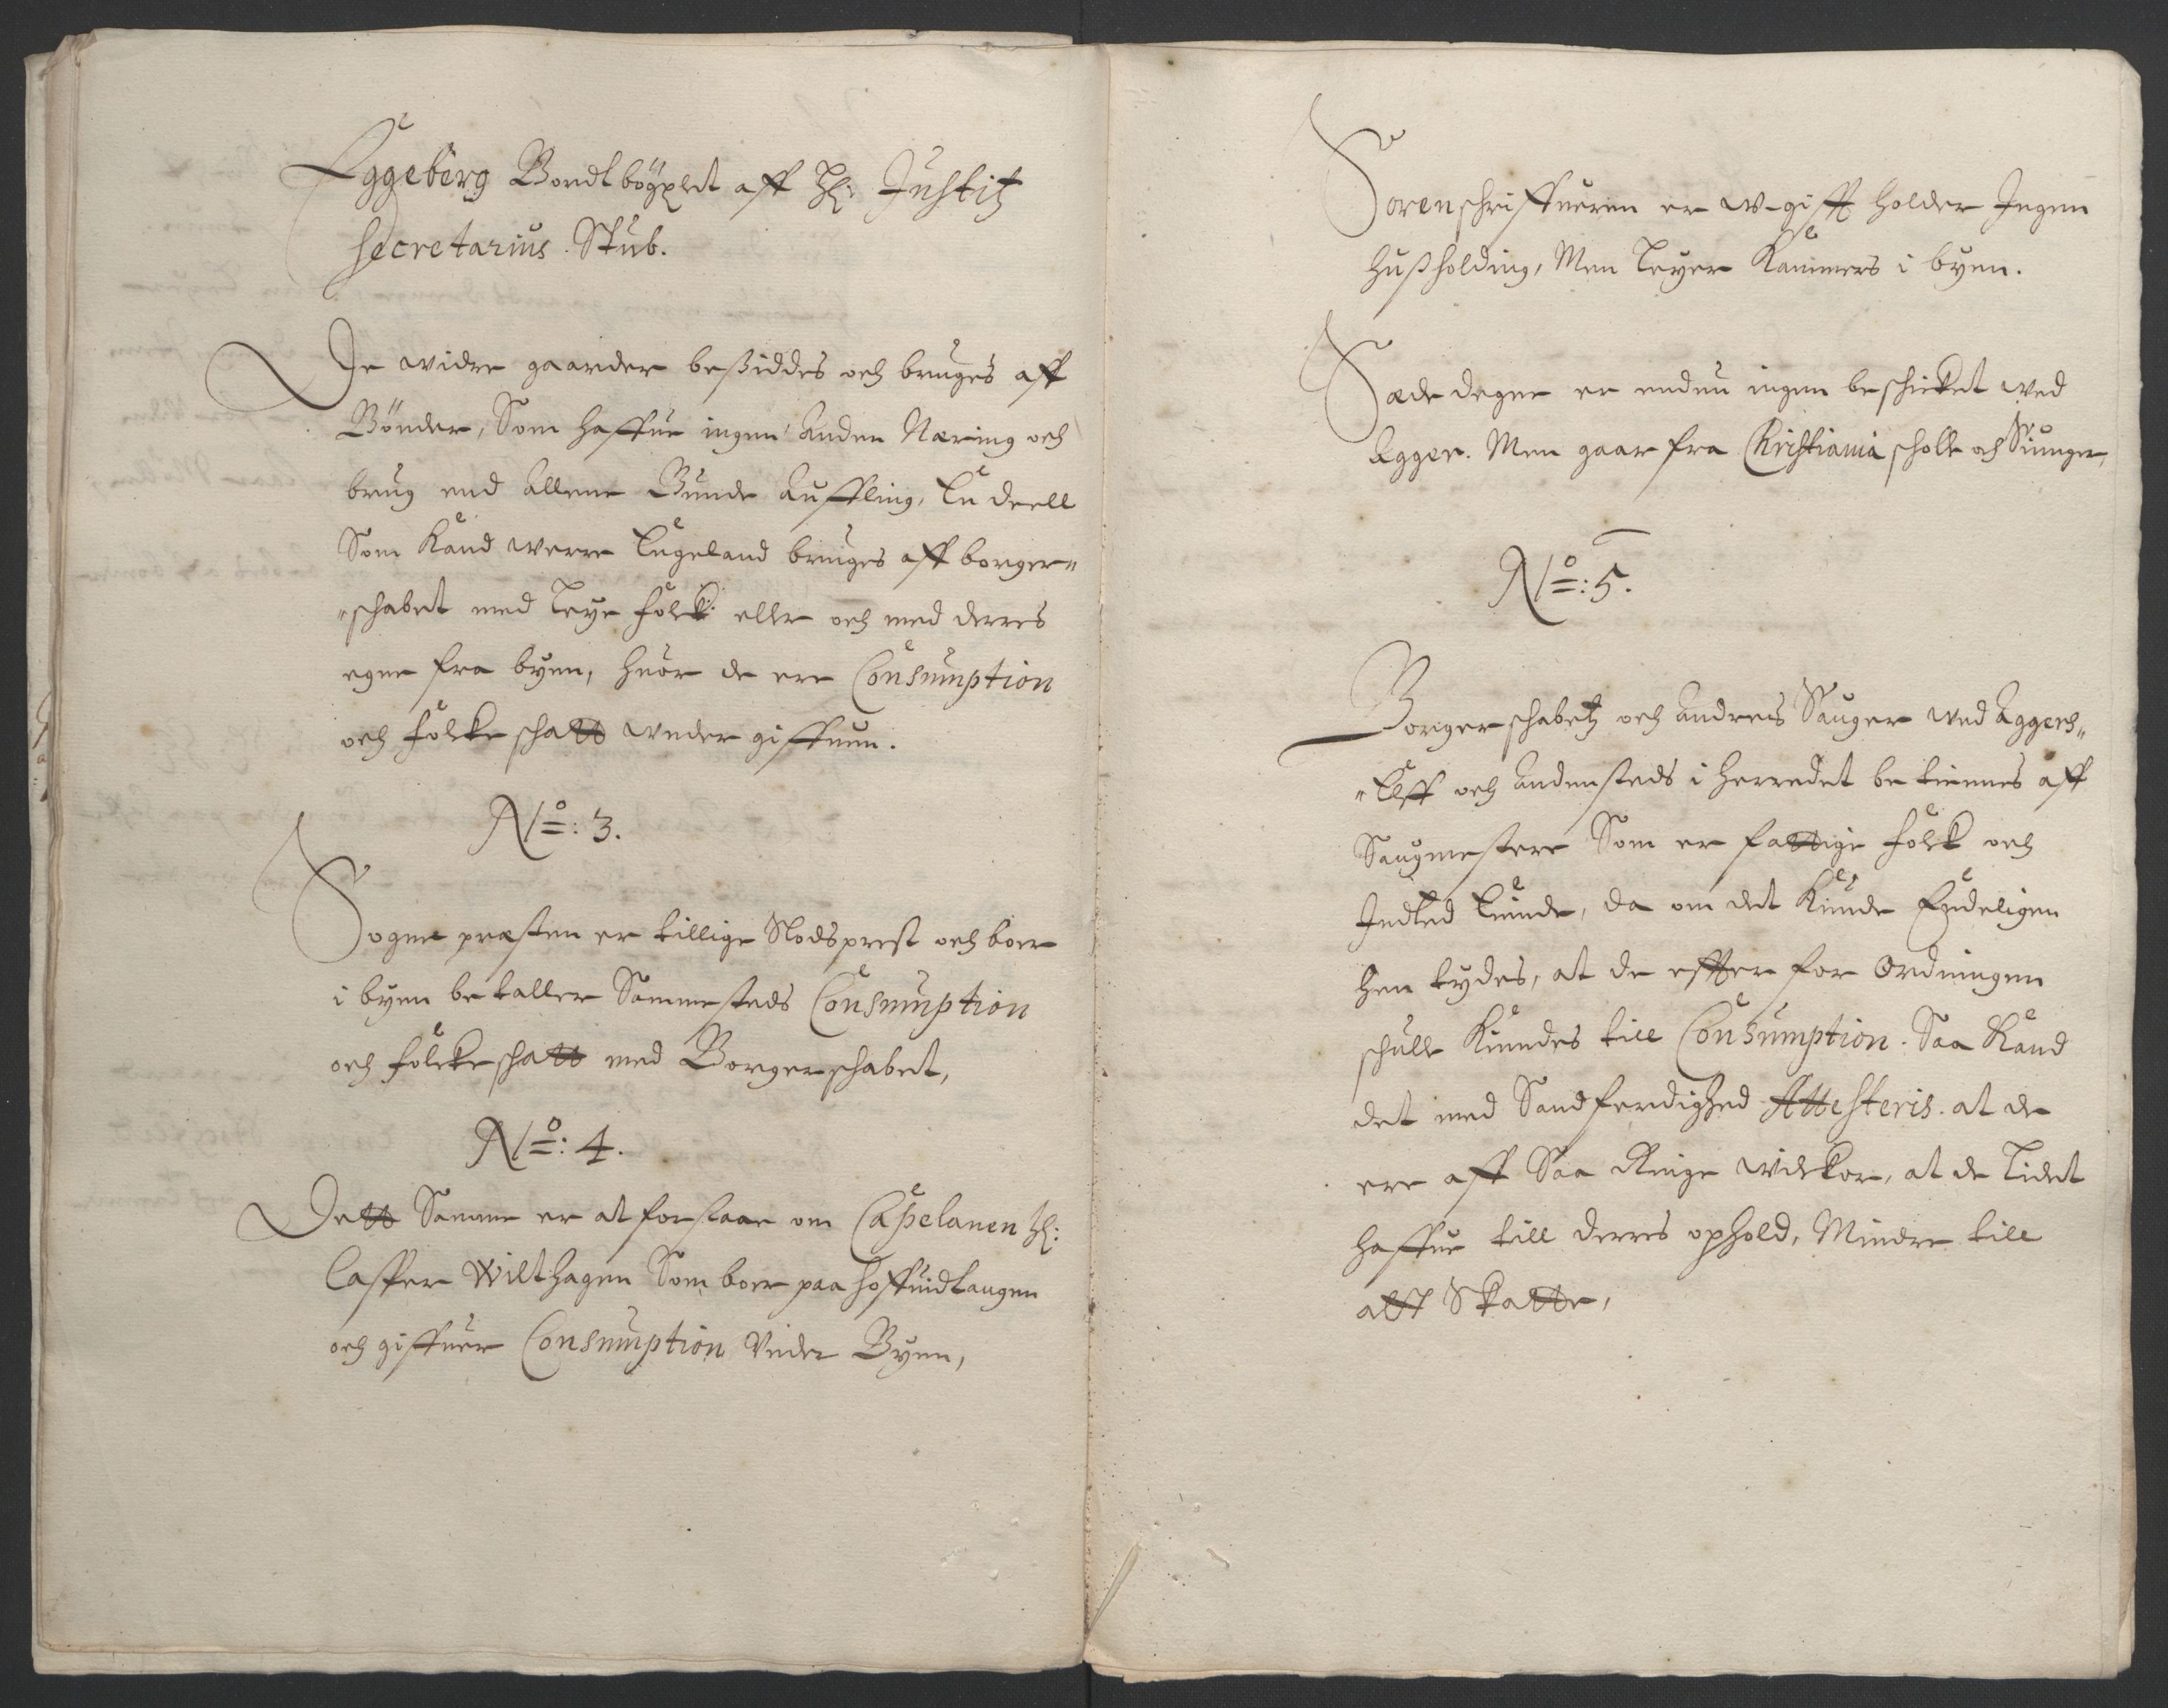 Eggeberg Bondt bögxlet aff Hr: Justitz
Secretarius Stub.
De widre gaarder besiddes och bruges aff
Bönder, Som haffue ingen Anden Næring och
brug end Allene Bunde Auffling, En deell
Som Kand werre Engeland bruges aff borger„
„schabet med Leye folck: eller och med derres
egne fra byen, huor de ere Consumption
och folckeschatt under giffuen.
No: 3.
Sogne præsten er tillige Slodsprest och boer
i byen betaller Sammesteds Consumption
och folckeschatt med Borgerschabet,
No: 4.
Dett Samme er at forstaae om Capelanen Hr:
Casper Wilthagen Som boer paa Hoffuidtangen
och giffuer Consumption Under Byen,
Sorenschriffueren er u-gifft holder Ingen
Hussholding, Men Leyer Kammers i byen.
Sæde degne er endnu ingen beschicket wed
Agger. Men gaar fra Christiania schole och Siunger,
No: 5.
Borgerschabetz och Andres Sauger wed Aggers„
„Elff och Andensteds i Herredet be tiennes aff
Saugmestere Som er fattige folck och
Indled Lunde, da om det Kunde Endeligen
hen tydes, at de effter for Ordningen
schulle Kiendes till Consumption. Saa Kand
det med Sandferdighed Attesteris. at de
ere aff Saa Ringe widkor, at de Lidet
haffue till derres ophold, Mindre till
att Skatte,